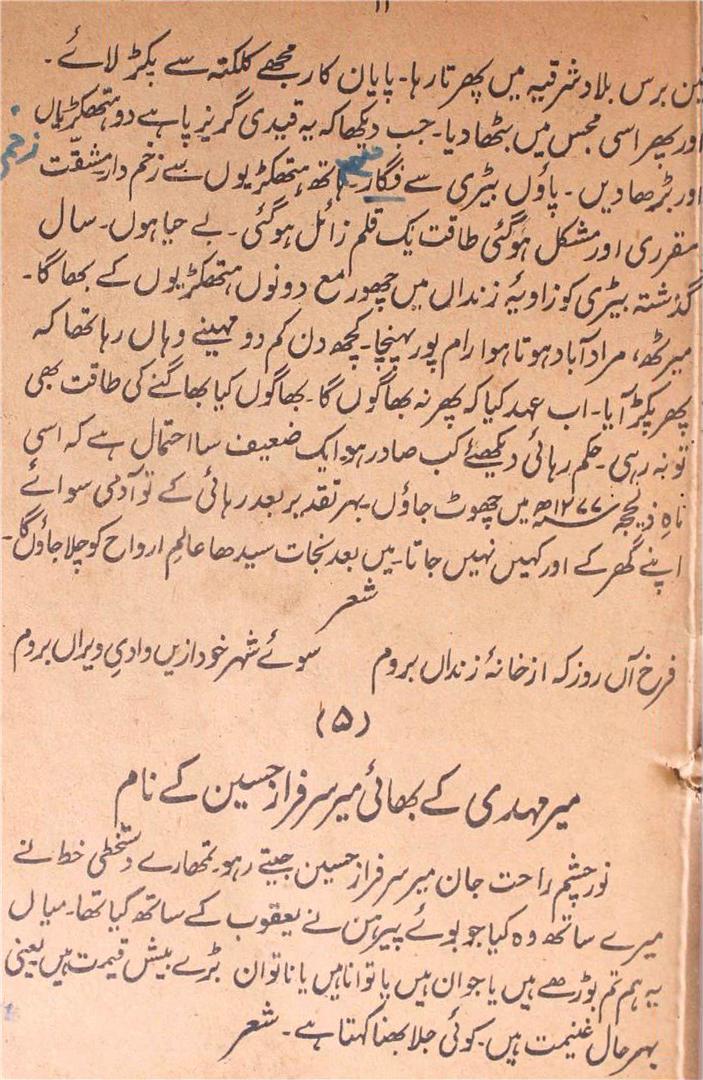 ۱۱
تین برس بلاد شرقیہ میں پھرتا رہا۔ پایان کار مجھے کلکتہ سے پکڑ لائے۔
اور پھر اسی محبس میں بٹھا دیا۔ جب دیکھا کہ یہ قیدی گریز پا ہے دو ہتھکڑیاں
اور بڑھا دیں۔ پاؤں بیڑی سے فگار۔ ہاتھ ہتھکڑیوں سے زخم دار مشقّت
زخمی
مقرری اور مشکل ہوگئی طاقت یک قلم زائل ہوگئی۔ بے حیا ہوں۔ سال
گذشتہ بیڑی کو زاویۂ زنداں میں چھوڑ مع دونوں ہتھکڑیوں کے بھاگا۔
میرٹھ، مرادآباد ہوتا ہوا رام پور پہنچا۔ کچھ دن کم دو مہینے وہاں رہا تھا کہ
پھر پکڑ آیا۔ اب عہد کیا کہ پھر نہ بھاگوں گا۔ بھاگوں کیا بھاگنے کی طاقت بھی
تو نہ رہی۔ حکم رہائی دیکھئے کب صادر ہو۔ ایک ضعیف سا احتمال ہے کہ اسی
ماہ ذیحجہ ۱۲۷۷ھ میں چھوٹ جاؤں۔ بہر تقدیر بعد رہائی کے تو آدمی سوائے
اپنے گھر کے اور کہیں نہیں جاتا۔ میں بعد نجات سیدھا عالمِ ارواح کو چلا جاؤں گا۔
شعر
فرخ آں روز کہ از خانۂ زنداں بروم سوئے شہر خود ازیں وادیِ ویراں بروم
(۵)
میر مہدی کے بھائی میر سرفراز حسین کے نام
نور چشم راحت جان میر سرفراز حسین جیتے رہو۔ تمھارے دستخطی خط نے
میرے ساتھ وہ کیا جو بوئے پیرہن نے یعقوب کے ساتھ کیا تھا۔ میاں
یہ ہم تم بوڑھے ہیں یا جوان ہیں یا توانا ہیں یا ناتوان بڑے بیش قیمت ہیں یعنی
بہرحال غنیمت ہیں۔ کوئی جلا بھنا کہتا ہے۔ شعر